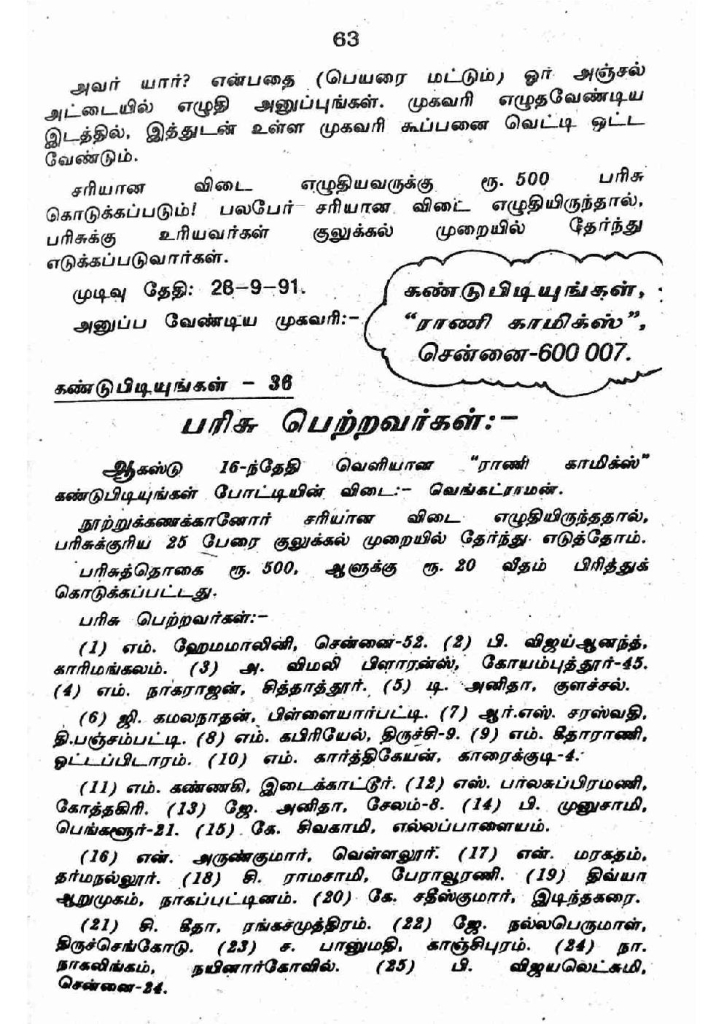 63
அவர் யார்? என்பதை (பெயரை மட்டும்) ஓர் அஞ்சல்
அட்டையில் எழுதி அனுப்புங்கள். முகவரி எழுதவேண்டிய
இடத்தில், இத்துடன் உள்ள முகவரி கூப்பனை வெட்டி ஒட்ட
வேண்டும்.
சரியான விடை எழுதியவருக்கு ரூ. 500 பரிசு
கொடுக்கப்படும்! பலபேர் சரியான விடை எழுதியிருந்தால்,
பரிசுக்கு உரியவர்கள் குலுக்கல் முறையில் தேர்ந்து
எடுக்கப்படுவார்கள்.
முடிவு தேதி: 28-9-91.
அனுப்ப வேண்டிய முகவரி:-
கண்டுபிடியுங்கள்,
“ராணி காமிக்ஸ்”,
சென்னை-600 007.
கண்டுபிடியுங்கள் - 36
பரிசு பெற்றவர்கள்:-
ஆகஸ்டு 16-ந்தேதி வெளியான “ராணி காமிக்ஸ்”
கண்டுபிடியுங்கள் போட்டியின் விடை:- வெங்கட்ராமன்.
நூற்றுக்கணக்கானோர் சரியான விடை எழுதியிருந்ததால்,
பரிசுக்குரிய 25 பேரை குலுக்கல் முறையில் தேர்ந்து எடுத்தோம்.
பரிசுத்தொகை ரூ. 500, ஆளுக்கு ரூ. 20 வீதம் பிரித்துக்
கொடுக்கப்பட்டது.
பரிசு பெற்றவர்கள்:-
(1) எம். ஹேமமாலினி, சென்னை-52. (2) பி. விஜய்ஆனந்த்,
காரிமங்கலம். (3) அ. விமலி பிளாரன்ஸ், கோயம்புத்தூர்-45.
(4) எம். நாகராஜன், சித்தாத்தூர். (5) டி. அனிதா, குளச்சல்.
(6) ஜி. கமலநாதன், பிள்ளையார்பட்டி. (7) ஆர்.எஸ். சரஸ்வதி,
தி.பஞ்சம்பட்டி. (8) எம். கபிரியேல், திருச்சி-9. (9) எம். கீதாராணி,
ஓட்டப்பிடாரம். (10) எம். கார்த்திகேயன், காரைக்குடி-4.
(11) எம். கண்ணகி, இடைக்காட்டூர். (12) எஸ். பாலசுப்பிரமணி,
கோத்தகிரி. (13) ஜே. அனிதா, சேலம்-8. (14) பி. முனுசாமி,
பெங்களூர்-21. (15) கே. சிவகாமி, எல்லப்பாளையம்.
(16) என். அருண்குமார், வெள்ளலூர். (17) என். மரகதம்,
தர்மநல்லூர். (18) சி. ராமசாமி, பேராவூரணி. (19) திவ்யா
ஆறுமுகம், நாகப்பட்டினம். (20) கே. சதீஸ்குமார், இடிந்தகரை.
(21) சி. கீதா, ரங்கசமுத்திரம். (22) ஜே. நல்லபெருமாள்,
திருச்செங்கோடு. (23) ச. பானுமதி, காஞ்சிபுரம். (24) நா.
நாகலிங்கம், நயினார்கோவில். (25) பி. விஜயலெட்சுமி,
சென்னை-24.